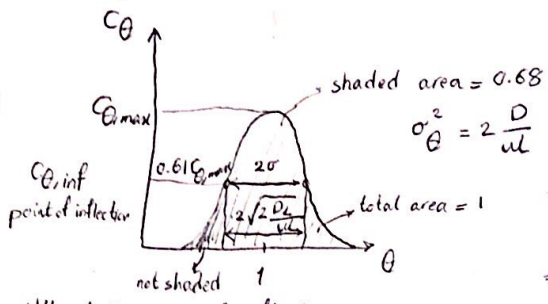 C_θ
shaded area = 0.68
C_θ,max
σ_θ^2 = 2 D/uL
0.61C_θ,max
2σ
C_θ,inf
point of inflection
2√(2 D_L/uL)
total area = 1
θ
not shaded
1